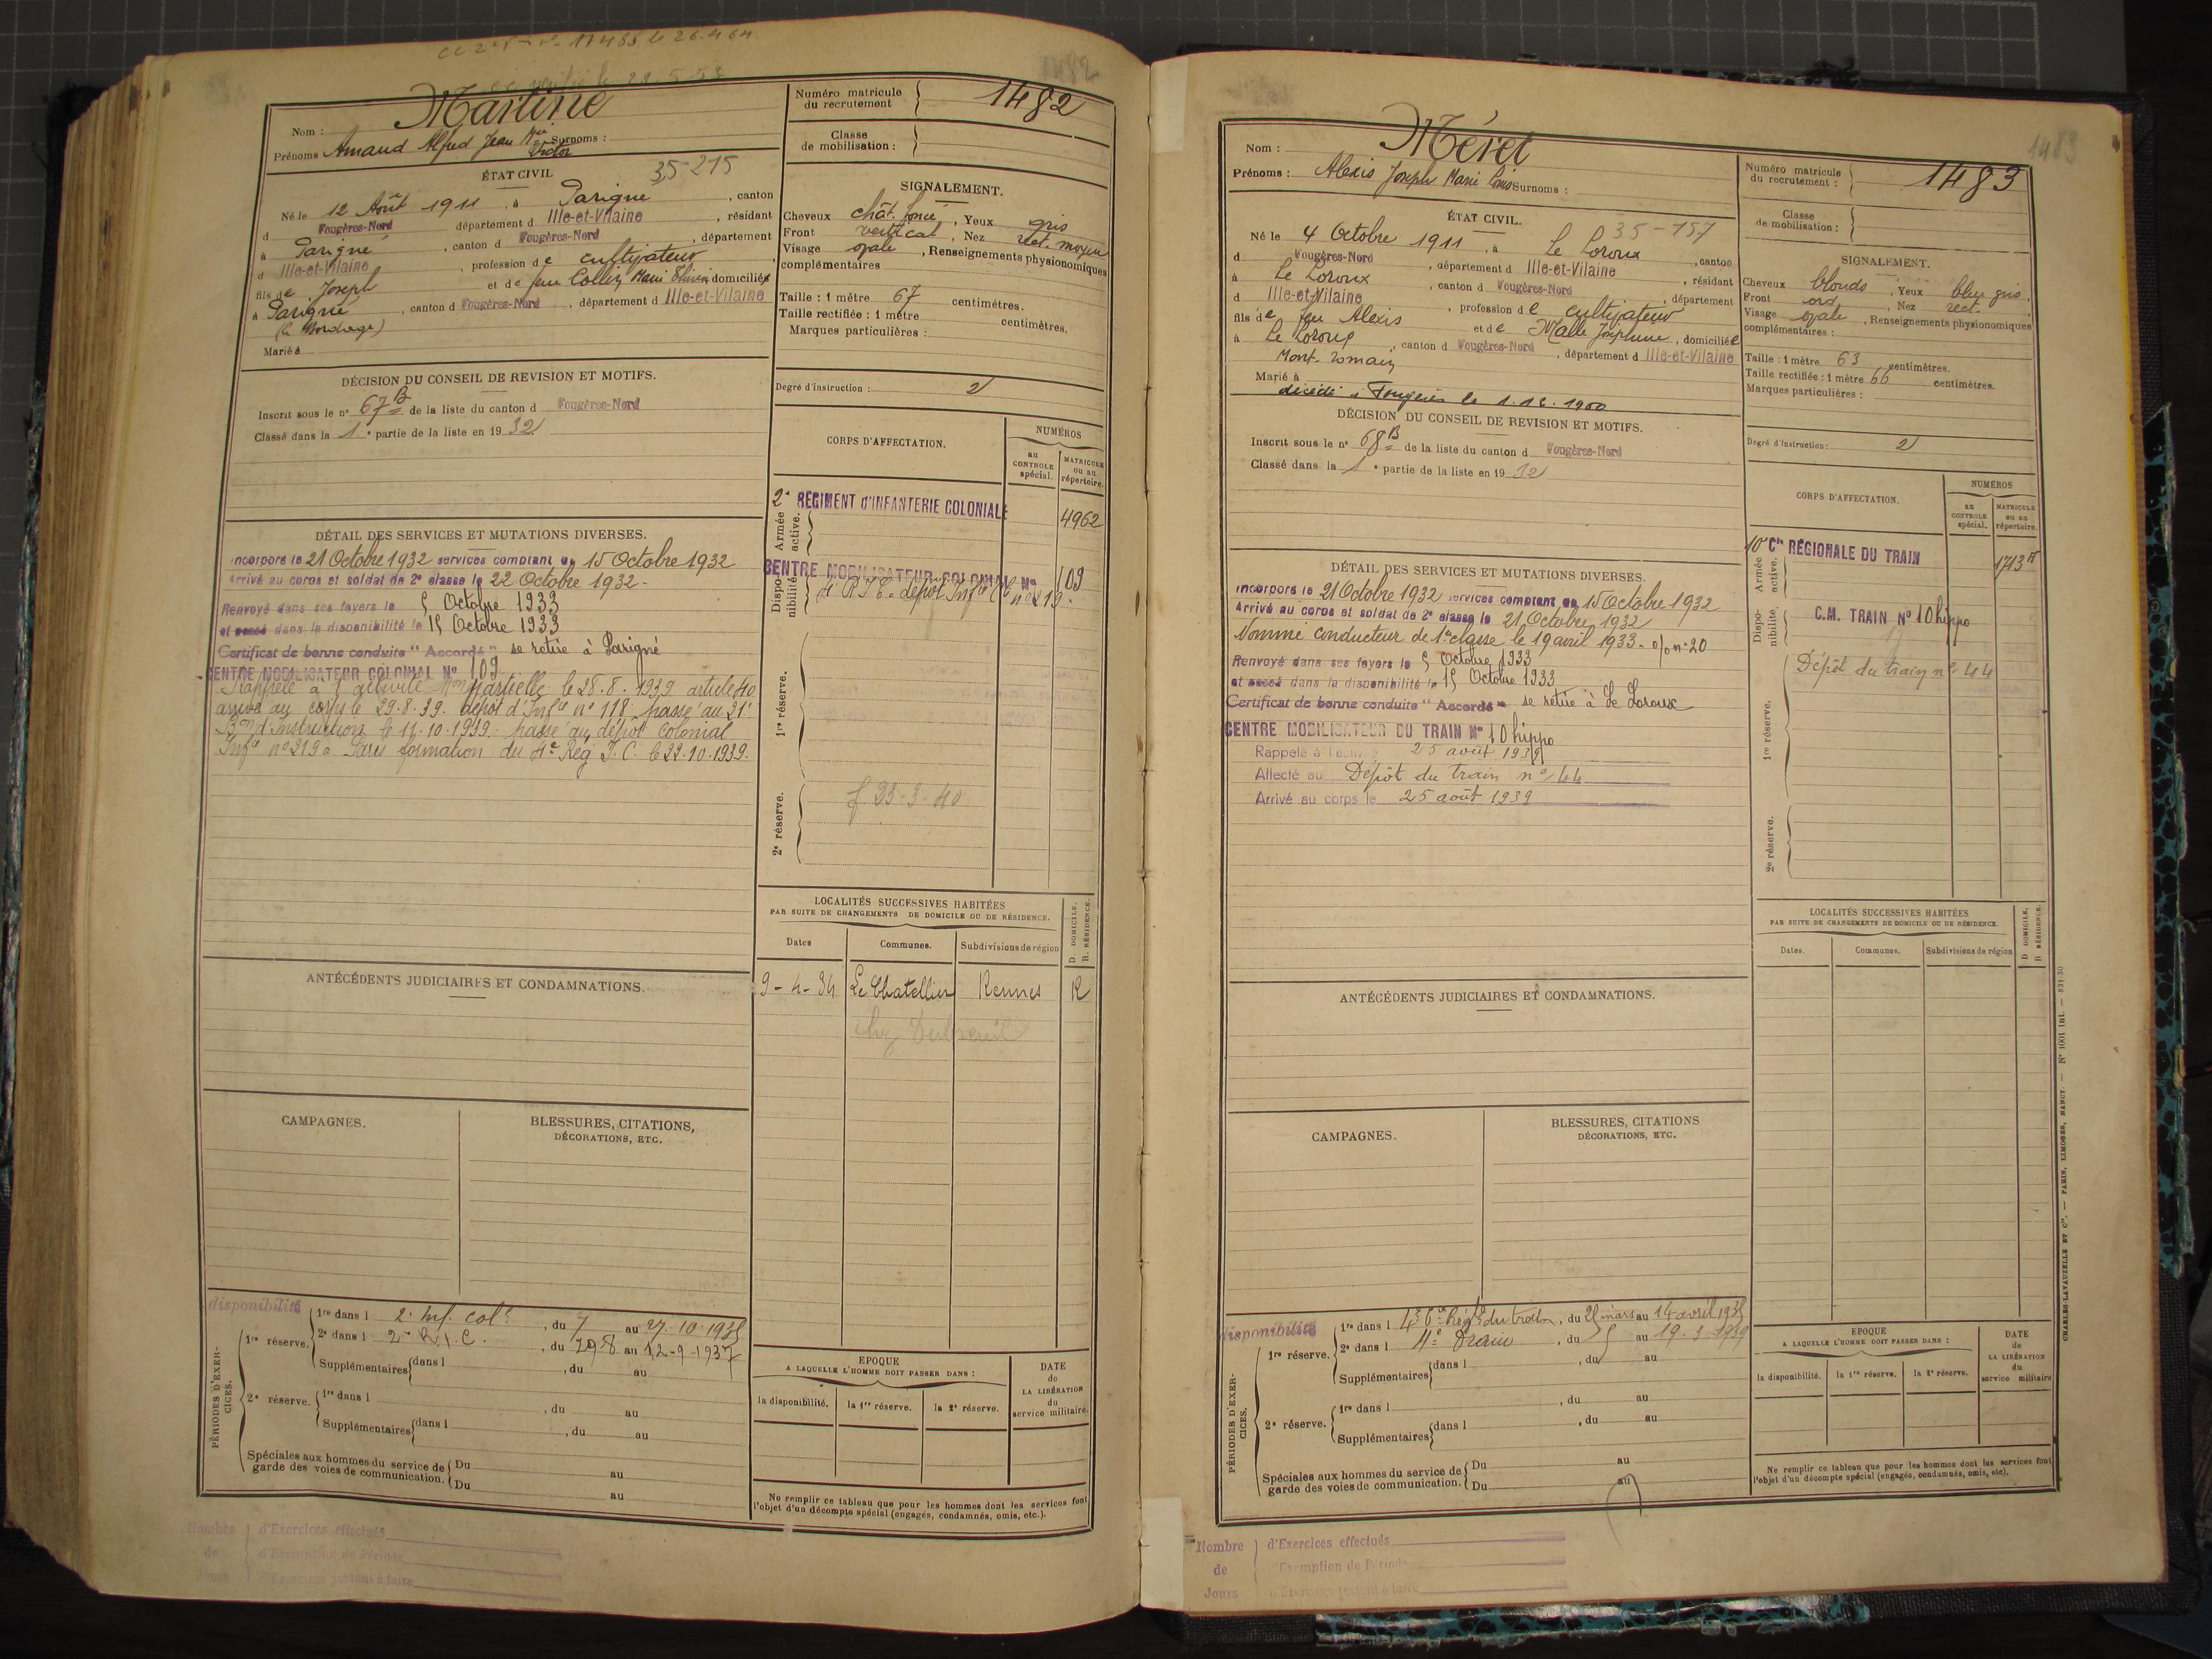 1482
Nom : Martine
Prénoms Amand Alfred Jean Mie Victor Surnoms :
Numéro matricule du recrutement 1482
Classe de mobilisation :
ÉTAT CIVIL
35-215
Né le 12 Août 1911, à Parigné, canton
d Fougères-Nord département d Ille-et-Vilaine, résidant
à Parigné, canton d Fougères-Nord, département
d Ille-et-Vilaine, profession de cultivateur
fils de Joseph et de feue domiciliés
à Parigné, canton d Fougères-Nord, département d Ille-et-Vilaine
Marié à
SIGNALEMENT.
Cheveux chât. foncé, Yeux gris
Front vertical, Nez rect. moyen
Visage ovale, Renseignements physionomiques
complémentaires
Taille : 1 mètre 67 centimètres.
Taille rectifiée : 1 mètre centimètres.
Marques particulières :
DÉCISION DU CONSEIL DE REVISION ET MOTIFS.
Inscrit sous le n° 67 B de la liste du canton d Fougères-Nord
Classé dans la 1e partie de la liste en 1932
Degré d'instruction : 2
CORPS D'AFFECTATION.
NUMÉROS
au CONTROLE spécial.
MATRICULE ou au répertoire.
Armée active.
2e RÉGIMENT D'INFANTERIE COLONIALE
4962
Disponibilité
CENTRE MOBILISATEUR COLONIAL N° 109
1re réserve.
2e réserve.
f 23-3-40
DÉTAIL DES SERVICES ET MUTATIONS DIVERSES.
Incorporé le 21 Octobre 1932 services comptant du 15 Octobre 1932
Arrivé au corps et soldat de 2e classe le 22 Octobre 1932.
Renvoyé dans ses foyers le 5 Octobre 1933
et passé dans la disponibilité le 15 Octobre 1933
Certificat de bonne conduite "Accordé" se retire à Parigné
CENTRE MOBILISATEUR COLONIAL N° 109
Rappelé à l'activité Mon partielle le 28.8.1939 article 40
arrivé au corps le 29.8.39. dépôt d'Infie n° 118 passé au 21e
Bon d'Instruction le 11.10.1939. passé au dépôt Colonial
Infie n° 219 à Paris formation du 4e Rég I.C. le 22.10.1939.
LOCALITÉS SUCCESSIVES HABITÉES
PAR SUITE DE CHANGEMENTS DE DOMICILE OU DE RÉSIDENCE.
D. DOMICILE.
R. RÉSIDENCE.
Dates Communes. Subdivisions de région
9-4-34 Le Chatellier Rennes R
ANTÉCÉDENTS JUDICIAIRES ET CONDAMNATIONS.
CAMPAGNES.
BLESSURES, CITATIONS,
DÉCORATIONS, ETC.
disponibilité
PÉRIODES D'EXERCICES.
1re réserve. 1re dans l 2e Inf. colle, du 7 au 27.10.1935
2e dans l 2e R.I.C., du 29.8 au 12-9-1937
Supplémentaires dans l , du au
2e réserve. 1re dans l , du au
Supplémentaires dans l , du au
Spéciales aux hommes du service de Du au
garde des voies de communication. Du au
EPOQUE
A LAQUELLE L'HOMME DOIT PASSER DANS :
la disponibilité. la 1re réserve. la 2e réserve.
DATE de LA LIBÉRATION du service militaire.
Ne remplir ce tableau que pour les hommes dont les services font
l'objet d'un décompte spécial (engagés, condamnés, omis, etc.).
Nombre de Jours
d'Exercices effectués
d'Exemption de Période
d'Exercices restant à faire
1483
Nom : Méret
Prénoms : Alexis Joseph Marie Louis Surnoms :
Numéro matricule du recrutement : 1483
Classe de mobilisation :
ÉTAT CIVIL.
35-157
Né le 4 Octobre 1911, à Le Loroux, canton
d Fougères-Nord, département d Ille-et-Vilaine, résidant
à Le Loroux, canton d Fougères-Nord, département
d Ille-et-Vilaine, profession de cultivateur
fils de feu Alexis et de Malle Joséphine, domiciliée
à Le Loroux, canton d Fougères-Nord, département d Ille-et-Vilaine
Mont Romain
Marié à
décédé à Fougères le 1.12.1960
SIGNALEMENT.
Cheveux blonds, Yeux bleu gris.
Front ord, Nez rect.
Visage ovale, Renseignements physionomiques
complémentaires :
Taille : 1 mètre 63 centimètres.
Taille rectifiée : 1 mètre 66 centimètres.
Marques particulières :
DÉCISION DU CONSEIL DE REVISION ET MOTIFS.
Inscrit sous le n° 68 B de la liste du canton d Fougères-Nord
Classé dans la 1e partie de la liste en 1932
Degré d'instruction : 2
CORPS D'AFFECTATION.
NUMÉROS
au CONTROLE spécial.
MATRICULE ou au répertoire.
Armée active.
10e Cie RÉGIONALE DU TRAIN
1713
Disponibilité
C.M. TRAIN N° 10 hippo
1re réserve.
Dépôt du train n° 44
2e réserve.
DÉTAIL DES SERVICES ET MUTATIONS DIVERSES.
Incorporé le 21 Octobre 1932 services comptant du 15 Octobre 1932
Arrivé au corps et soldat de 2e classe le 21 Octobre 1932
Nommé conducteur de 1re classe le 19 avril 1933. o/ n° 20
Renvoyé dans ses foyers le 5 Octobre 1933
et passé dans la disponibilité le 15 Octobre 1933
Certificat de bonne conduite "Accordé" se retire à Le Loroux
CENTRE MOBILISATEUR DU TRAIN N° 10 hippo
Rappelé à l'activité 25 août 1939
Affecté au Dépôt du train n° 44
Arrivé au corps le 25 août 1939
LOCALITÉS SUCCESSIVES HABITÉES
PAR SUITE DE CHANGEMENTS DE DOMICILE OU DE RÉSIDENCE.
D DOMICILE.
R RÉSIDENCE.
Dates. Communes. Subdivisions de région
ANTÉCÉDENTS JUDICIAIRES ET CONDAMNATIONS.
CAMPAGNES.
BLESSURES, CITATIONS
DÉCORATIONS, ETC.
disponibilité
PÉRIODES D'EXERCICES.
1re réserve. 1re dans l , du mars au 14 avril 1935
2e dans l 4e Train, du au 19.3.1939
Supplémentaires dans l , du au
2e réserve. 1re dans l , du au
Supplémentaires dans l , du au
Spéciales aux hommes du service de Du au
garde des voies de communication. Du au
EPOQUE
A LAQUELLE L'HOMME DOIT PASSER DANS :
la disponibilité. la 1re réserve. la 2e réserve.
DATE de LA LIBÉRATION du service militaire
Ne remplir ce tableau que pour les hommes dont les services font
l'objet d'un décompte spécial (engagés, condamnés, omis, etc).
CHARLES-LAVAUZELLE ET Cie. — PARIS, LIMOGES, NANCY. — N° 1001 Int. — 831-30
Nombre de Jours
d'Exercices effectués
d'Exemption de Période
d'Exercices restant à faire